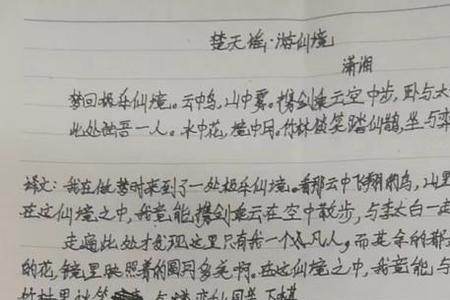 楚天谣·游仙境
潇湘
梦回极乐仙境。云中鸟,山中雾。携剑乘云空中步,卧与太
此处独吾一人。水中花,镜中月。竹林谈笑踏仙鹊,坐与奕
译文:我在做梦时来到了一处极乐仙境。看那云中飞翔的鸟,山里
在这仙境之中,我竟能携剑乘云在空中散步,与李太白一走
走遍此处才发现这里只有我一个凡人,而其余的都
的花,镜里映照着的圆月多美啊。在这仙境之中,我竟能与
竹林里谈笑 与 奕仙同坐下棋